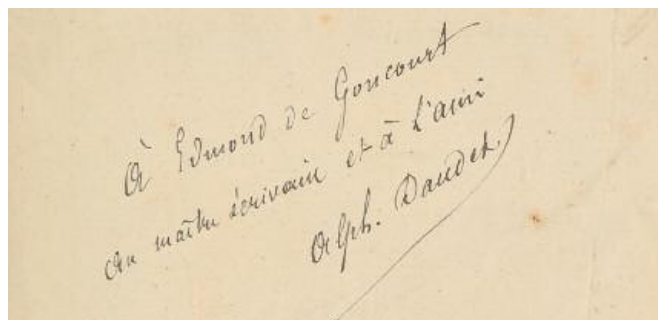 À Edmond de Goncourt
au maître écrivain et à l'ami
Alph. Daudet.